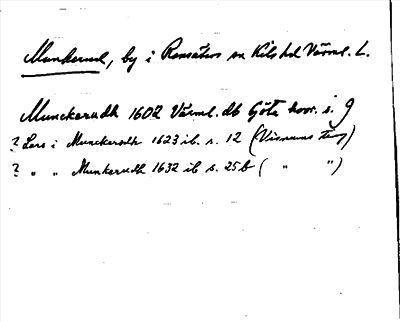 Munkerud, by i Ransäters sn Kils hd Värml. L.
Munckerudh 1602 Värml. db Göta hovr. s. 9
? Lars i Munckerudh 1623 ib. s. 12 (Visnums ting)
? " " Munkerudh 1632 ib s. 25b ( " " )